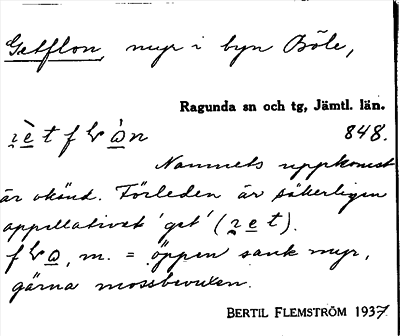 Getflon, myr i byn Böle,
Ragunda sn och tg, Jämtl. län.
848.
Namnets uppkomst
är okänd. Förleden är säkerligen
appellativet 'get' ( ).
m. = öppen sank myr,
gärna mossbevuxen.
BERTIL FLEMSTRÖM 1937